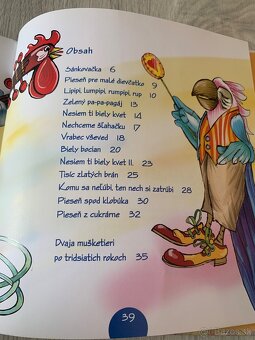 Obsah
Sánkovačka 6
Pieseň pre malé dievčatko 9
Lipipi, lumpipi, rumpipi, rup 10
Zelený pa-pa-pagáj 13
Nesiem ti biely kvet 14
Nechceme šľahačku 17
Vrabec vševed 18
Biely bocian 20
Nesiem ti biely kvet II. 23
Tisíc zlatých brán 25
Komu sa neľúbi, ten nech si zatrúbi 28
Pieseň spod klobúka 30
Pieseň z cukrárne 32
Dvaja mušketieri
po tridsiatich rokoch 35
39